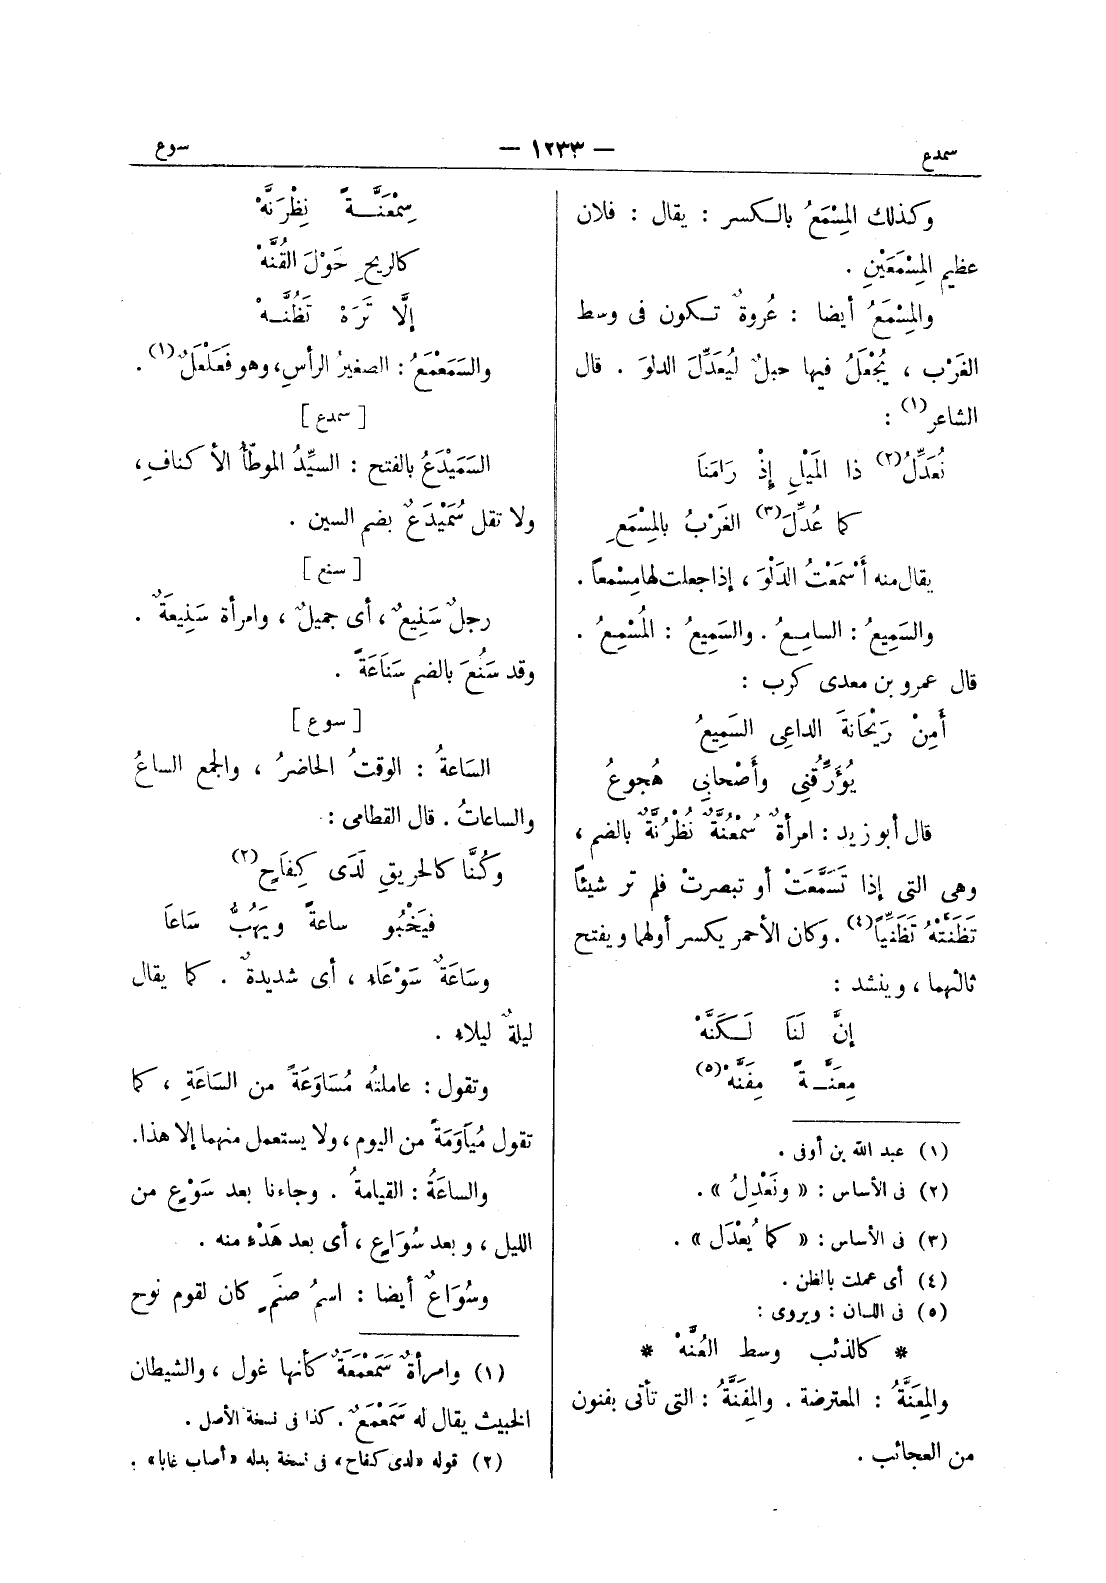 سمدع
— ١٢٣٣ —
سوع
وكذلك المِسْمَعُ بالكسر : يقال : فلان
عظيم المِسْمَعَيْنِ .
والمِسْمَعُ أيضا : عُروةٌ تكون فى وسط
الغَرْب ، يُجْعَلُ فيها حبلٌ ليُعَدِّلَ الدلوَ . قال
الشاعر(١) :
نُعَدِّلُ(٢) ذا المَيْلِ إِذْ رَامَنَا
كما عُدِّلَ(٣) الغَرْبُ بالمِسْمَعِ
يقال منه أَسْمَعْتُ الدَلْوَ ، إذا جعلت لها مِسْمعاً .
والسَمِيعُ : السامِعُ . والسَمِيعُ : المُسْمِعُ .
قال عمرو بن معدى كرب :
أَمِنْ رَيْحَانَةَ الداعِى السَمِيعُ
يُؤَرِّقُنِى وأَصْحابِى هُجوعُ
قال أبو زيد : امرأةٌ سُمْعُنَّةٌ نُظْرُنَّةٌ بالضم ،
وهى التى إذا تَسَمَّعَتْ أو تبصرتْ فلم تر شيئاً
تَظَنَّتْهُ تَظَنِّياً(٤) . وكان الأحمر يكسر أولهما ويفتح
ثالثهما ، وينشد :
إِنَّ لَنَا لَكَنَّهْ
مِعَنَّةً مِفَنَّهْ(٥)
(١) عبد الله بن أوفى .
(٢) فى الأساس : « ونَعْدِلُ » .
(٣) فى الأساس : « كما يُعْدَل » .
(٤) أى عملت بالظن .
(٥) فى اللسان : ويروى :
* كالذئب وسط العُنَّهْ *
والمِعَنَّةُ : المعترضة . والمِفَنَّةُ : التى تأتى بفنون
من العجائب .
سِمْعَنَّةً نِظْرَنَّهْ
كالريحِ حَوْلَ القُنَّهْ
إِلَّا تَرَهْ تَظُنَّهْ
والسَمَعْمَعُ : الصغيرُ الرأسِ، وهو فَعَلْعَلٌ(١) .
[ سمدع ]
السَمَيْدَعُ بالفتح : السيِّدُ الموطّأُ الأكنافِ ،
ولا تقل سُمَيْدَعٌ بضم السين .
[ سنع ]
رجلٌ سَنِيعٌ ، أى جميلٌ ، وامرأة سَنِيعَةٌ .
وقد سَنُعَ بالضم سَنَاعَةً .
[ سوع ]
السَاعةُ : الوقتُ الحاضرُ ، والجمع الساعُ
والساعاتُ . قال القطامى :
وكُنَّا كالحريقِ لَدَى كِفَاحٍ(٢)
فيَخْبُو ساعةً ويَهُبُّ سَاعَا
وسَاعَةٌ سَوْعَاء ، أى شديدةٌ . كما يقال
ليلةٌ ليلاء .
وتقول : عاملته مُسَاوَعَةً من السَاعَةِ ، كما
تقول مُيَاوَمَةً من اليوم ، ولا يستعمل منهما إلا هذا.
والساعَةُ : القيامةُ . وجاءنا بعد سَوْعٍ من
الليل ، وبعد سُوَاعٍ ، أى بعد هَدْءٍ منه .
وسُوَاعٌ أيضا : اسمُ صنَمٍ كان لقوم نوح
(١) وامرأةٌ سَمَعْمَعَةٌ كأنها غول ، والشيطان
الخبيث يقال له سَمَعْمَعٌ . كذا فى نسخة الأصل .
(٢) قوله «لدى كفاح» فى نسخة بدله «أصاب غابا» .